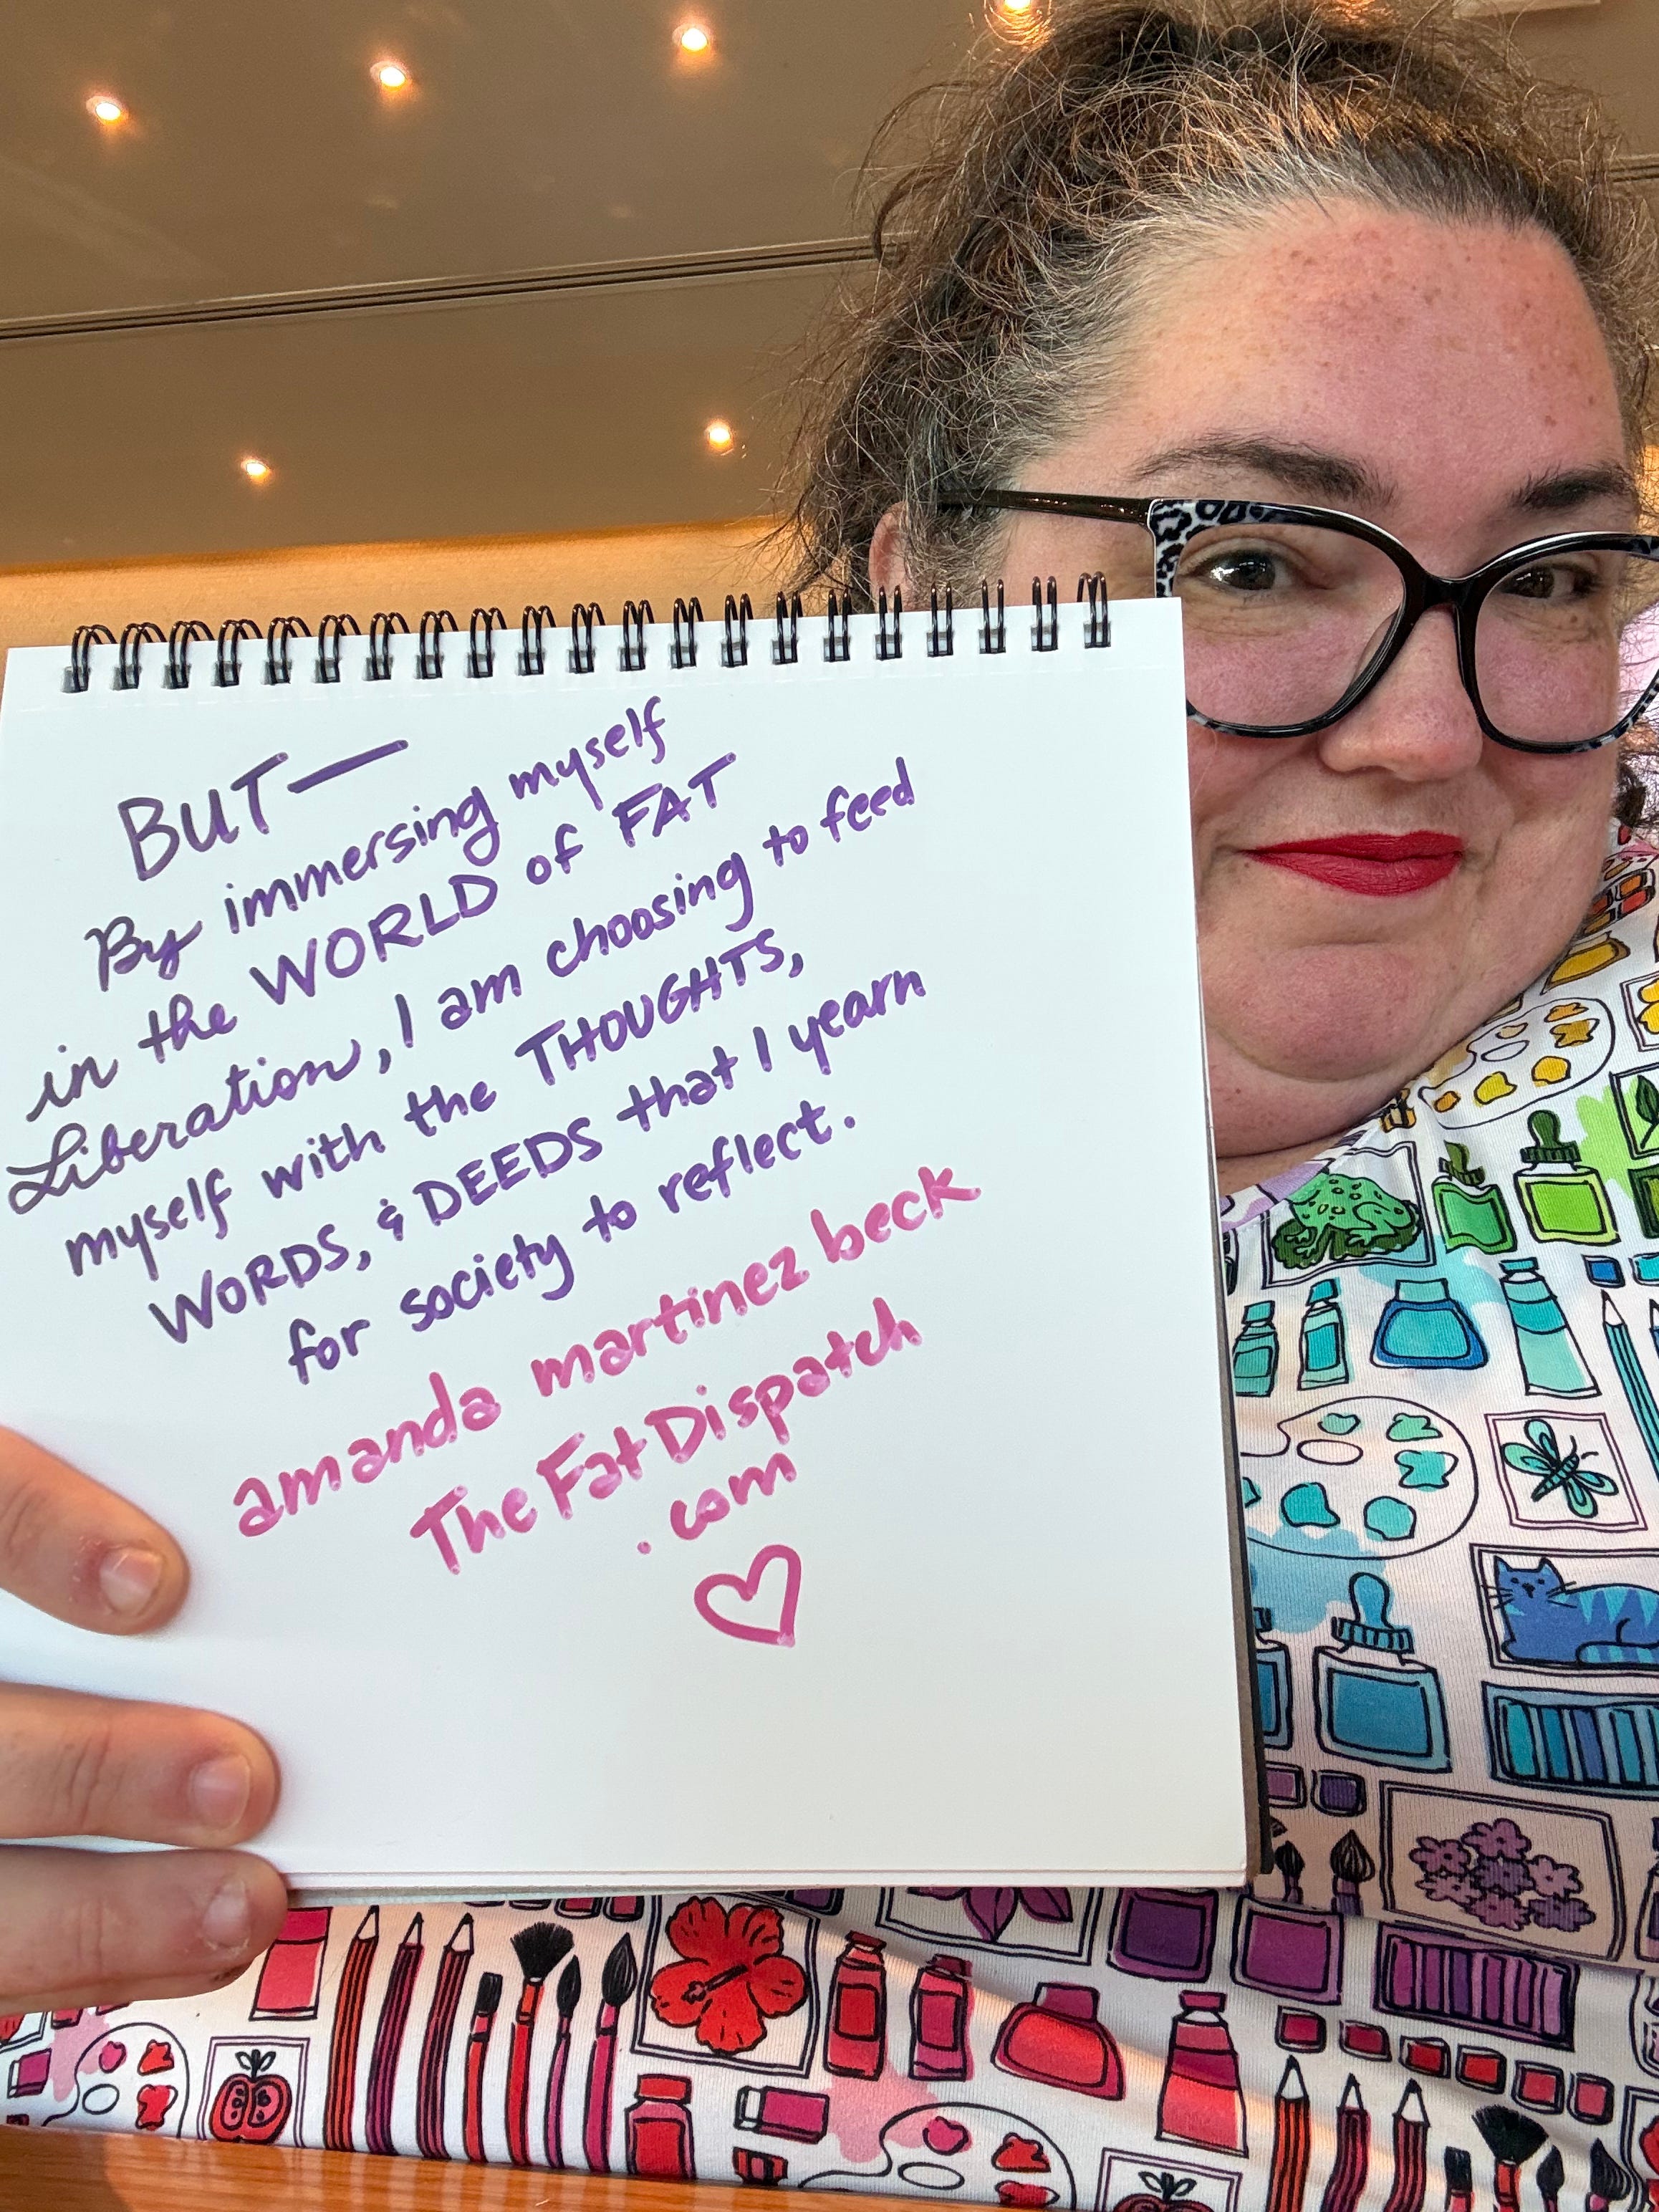 BUT—
By immersing myself
in the WORLD of FAT
Liberation, I am choosing to feed
myself with the THOUGHTS,
WORDS, & DEEDS that I yearn
for society to reflect.
amanda martinez beck
The Fat Dispatch
.com